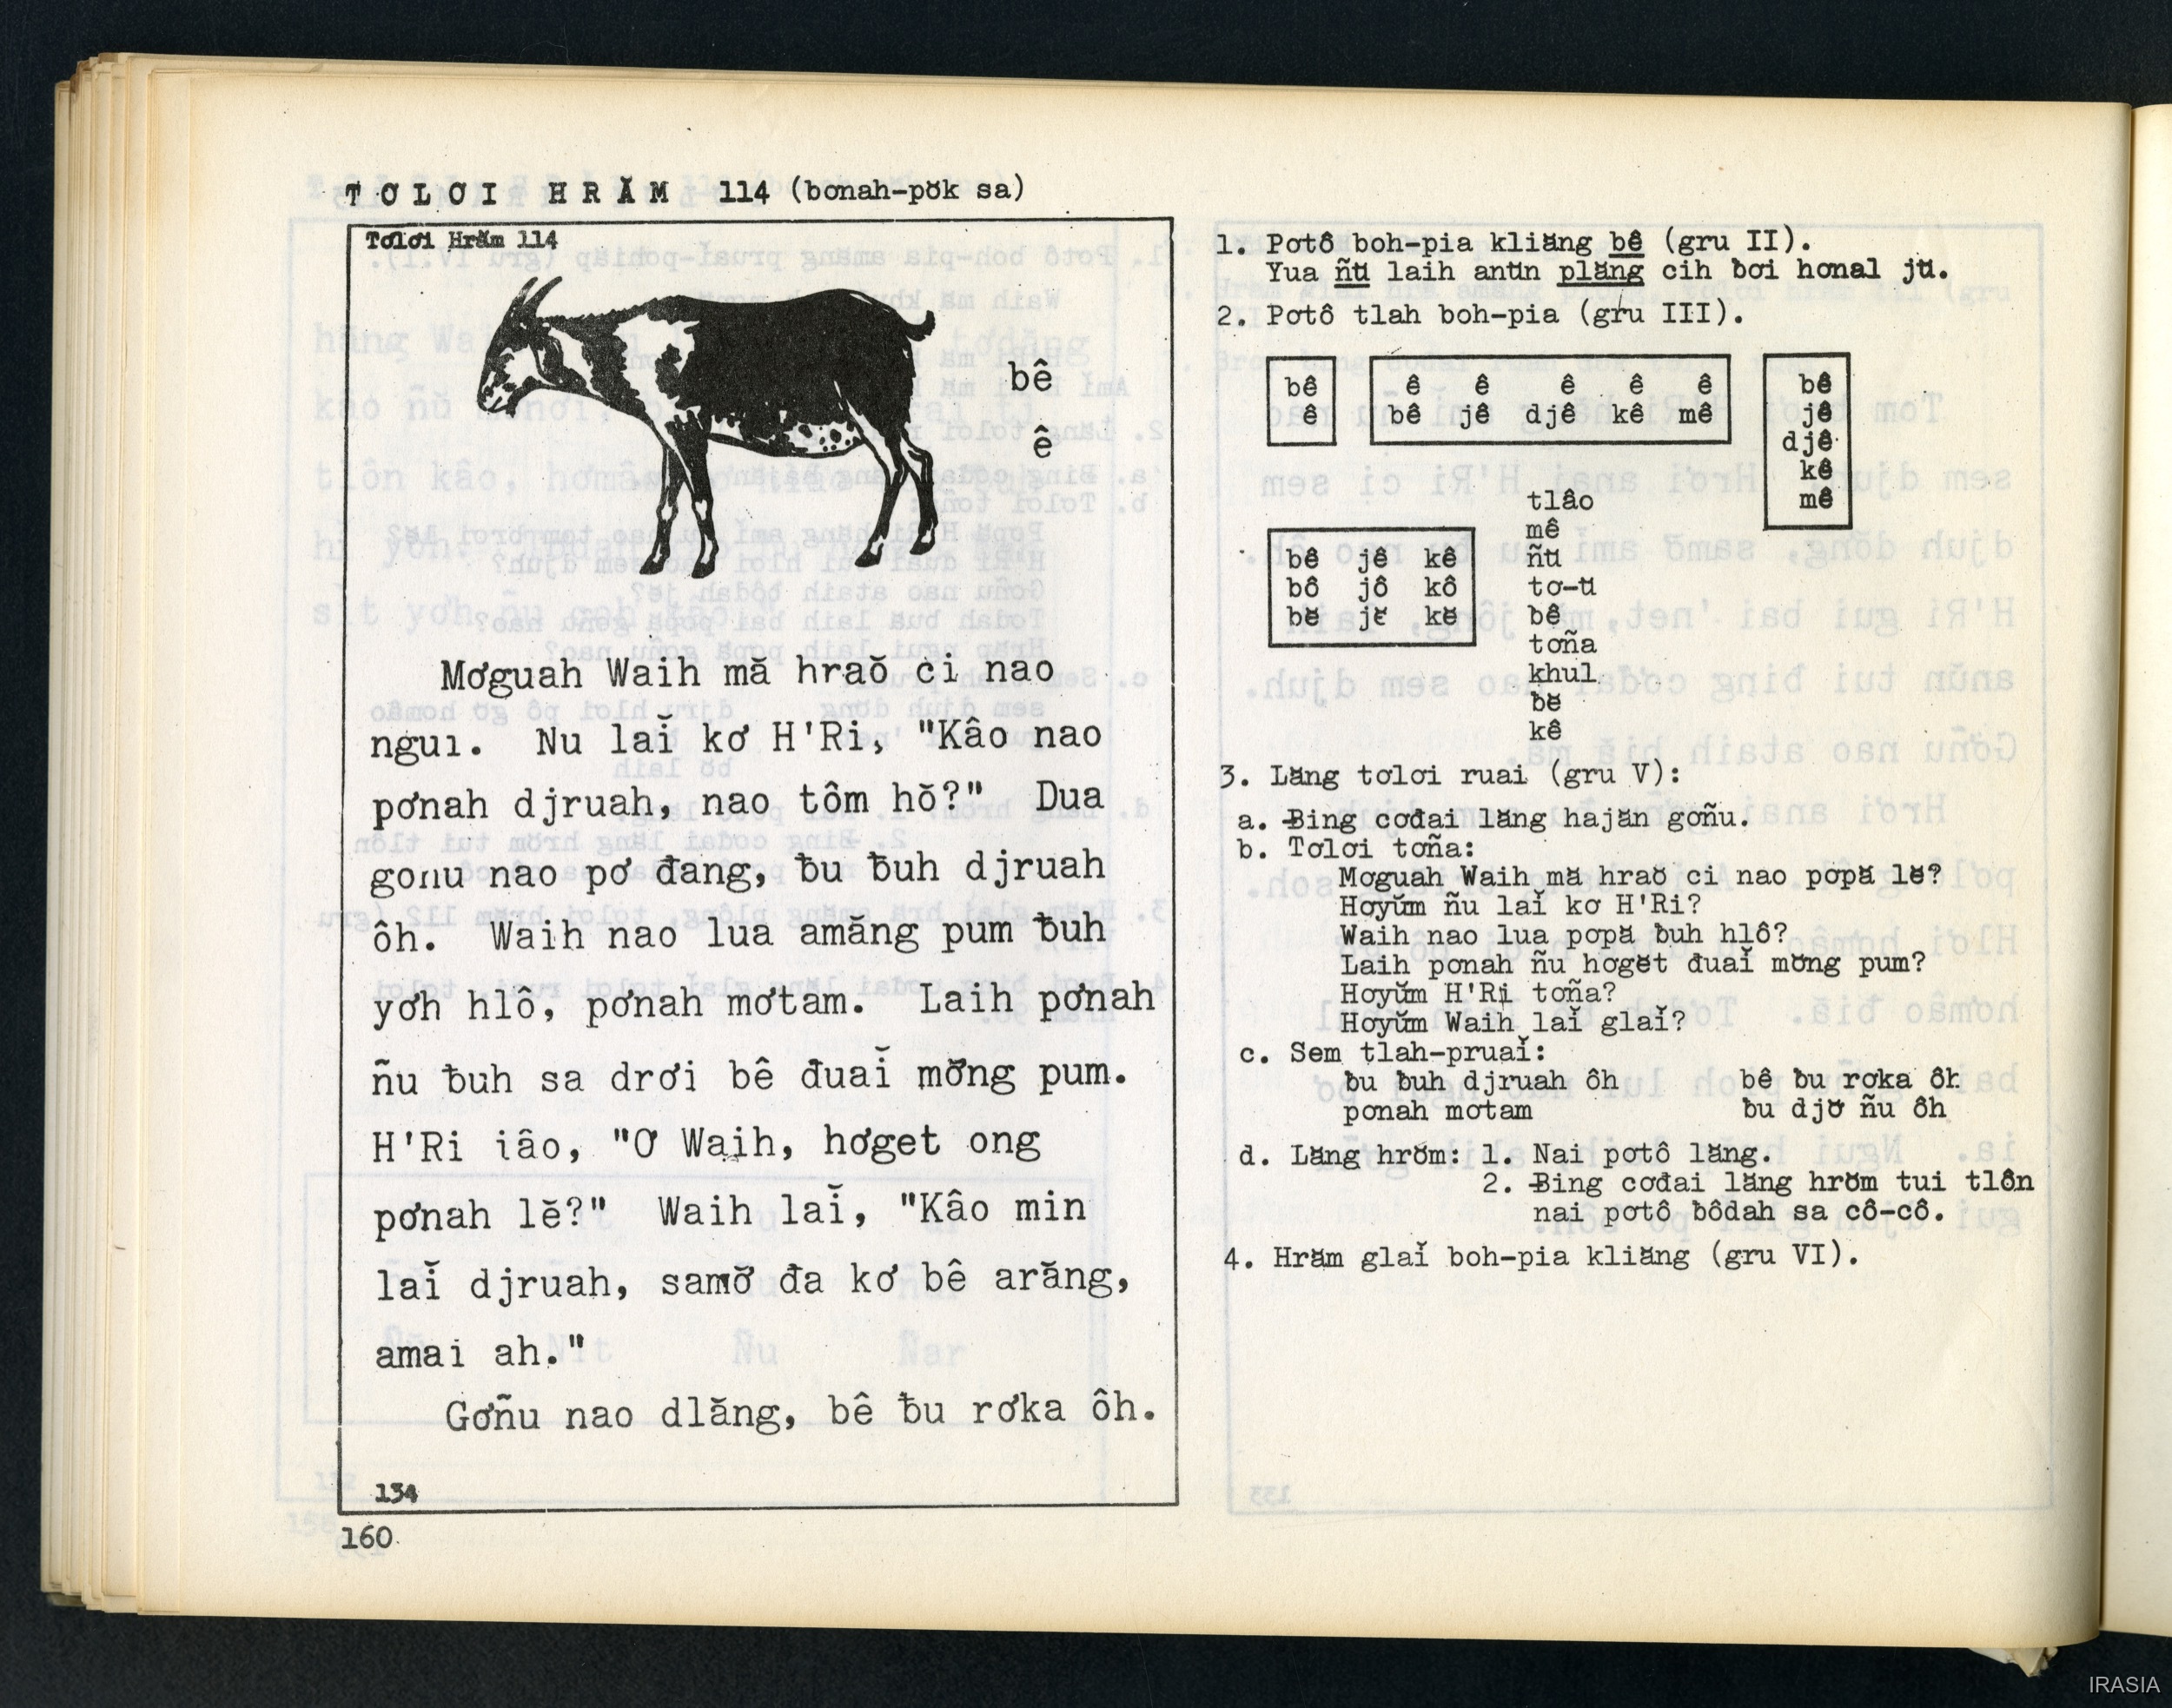 TƠLƠI HRĂM 114 (bơnah-pŏk sa)
Tơlơi Hrăm 114
bê
ê
Mơguah Waih mă hraŏ ci nao
ngui. Ñu laĭ kơ H'Ri, "Kâo nao
pơnah djruah, nao tôm hŏ?" Dua
gơñu nao pơ đang, ƀu ƀuh djruah
ôh. Waih nao lua amăng pum ƀuh
yơh hlô, pơnah mơtam. Laih pơnah
ñu ƀuh sa drơi bê đuaĭ mơ̆ng pum.
H'Ri iâo, "Ơ Waih, hơget ong
pơnah lĕ?" Waih laĭ, "Kâo min
laĭ djruah, samơ̆ đa kơ bê arăng,
amai ah."
Gơñu nao dlăng, bê ƀu rơka ôh.
134
160
1. Pơtô boh-pia kliăng bê (gru II).
Yua ñŭ laih anŭn plăng cih ƀơi hơnal jŭ.
2. Pơtô tlah boh-pia (gru III).
bê
ê
ê ê ê ê ê
bê jê djê kê mê
bê
jê
djê
kê
mê
bê jê kê
bô jô kô
bĕ jĕ kĕ
tlâo
mê
ñŭ
tơ-ŭ
bê
tơña
khul
ƀĕ
kê
3. Lăng tơlơi ruai (gru V):
a. Ƀing cơđai lăng hajăn gơñu.
b. Tơlơi tơña:
Mơguah Waih mă hraŏ ci nao pơpă lĕ?
Hơyŭm ñu laĭ kơ H'Ri?
Waih nao lua pơpă ƀuh hlô?
Laih pơnah ñu hơgĕt đuaĭ mơ̆ng pum?
Hơyŭm H'Ri tơña?
Hơyŭm Waih laĭ glaĭ?
c. Sem tlah-pruaĭ:
ƀu ƀuh djruah ôh bê ƀu rơka ôh
pơnah mơtam ƀu djơ̆ ñu ôh
d. Lăng hrŏm: 1. Nai pơtô lăng.
2. Ƀing cơđai lăng hrŏm tui tlôn
nai pơtô ƀôdah sa cô-cô.
4. Hrăm glaĭ boh-pia kliăng (gru VI).
IRASIA